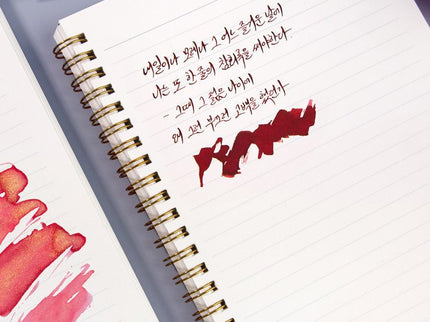 내일이나 모레나 그 어느 즐거운 날에
나는 또 한 줄의 참회록을 써야한다.
- 그때 그 젊은 나이에
왜 그런 부끄런 고백을 했던가